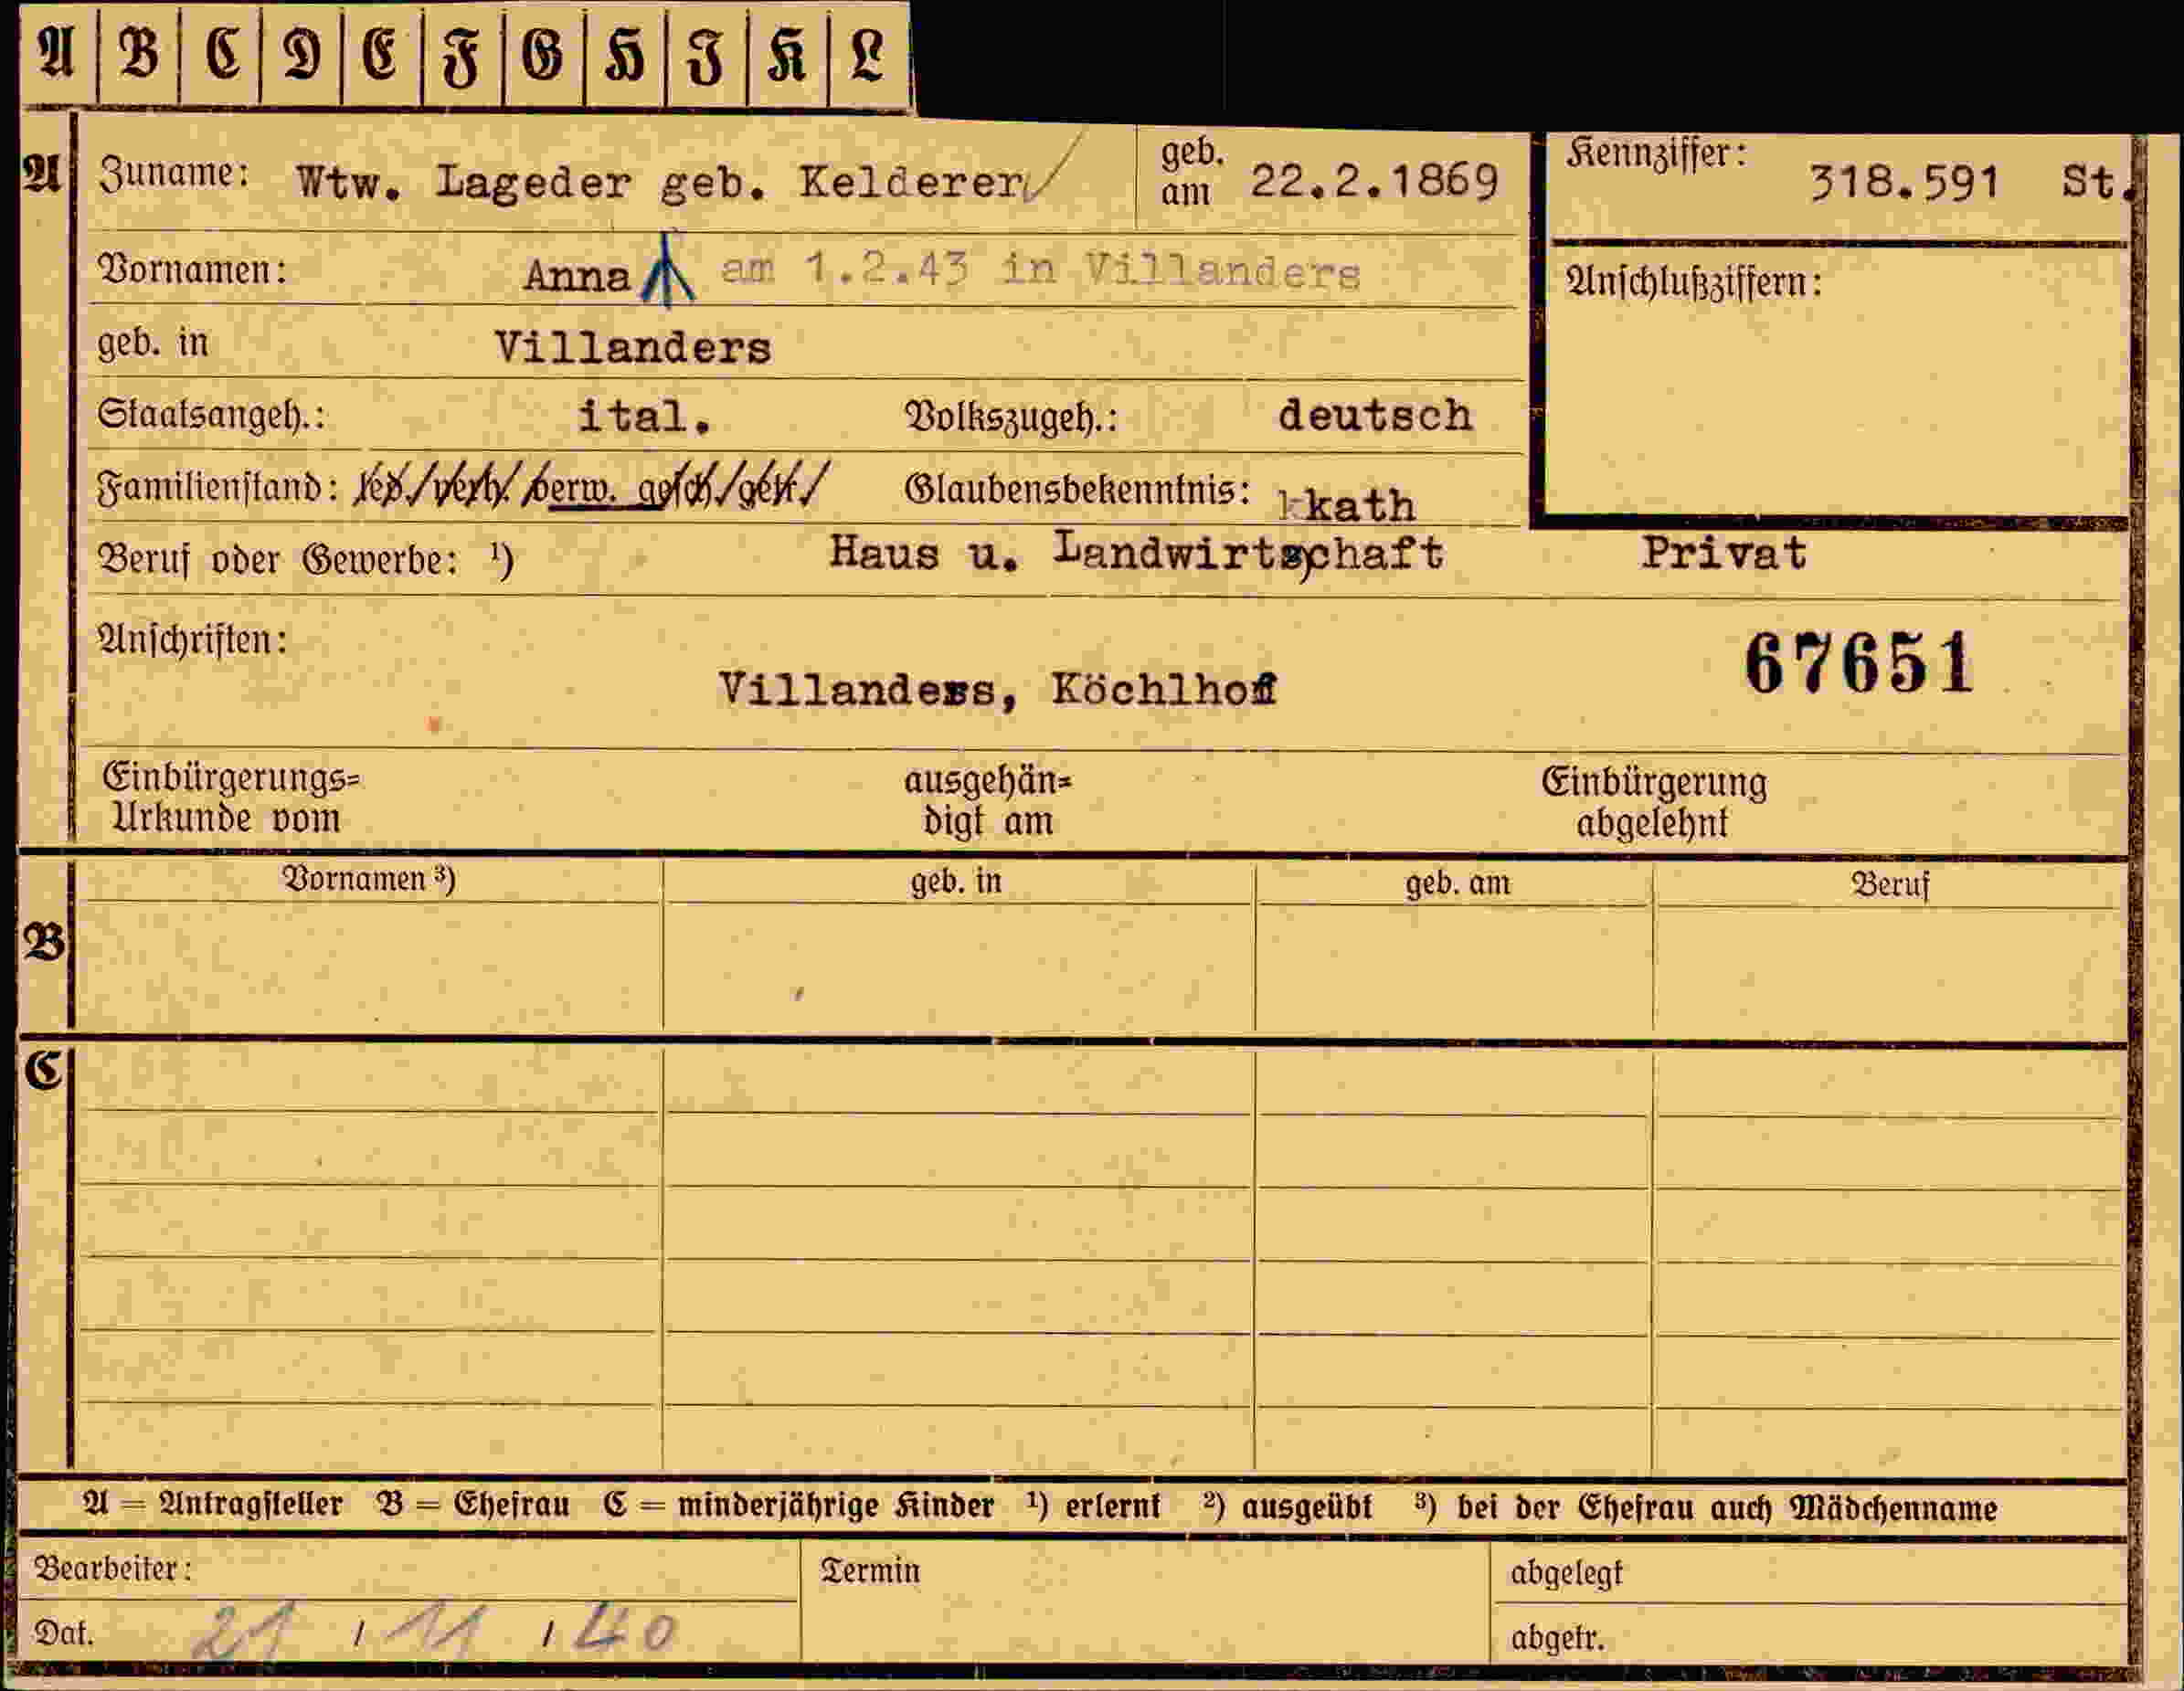 A B C D E F G H J K L
A Zuname: Wtw. Lageder geb. Kelderer geb. am 22.2.1869 Kennziffer: 318.591 St.
Vornamen: Anna am 1.2.43 in Villanders Anschlußziffern:
geb. in Villanders
Staatsangeh.: ital. Volkszugeh.: deutsch
Familienstand: led./verh./verw. gesch./getr./ Glaubensbekenntnis: kkath
Beruf oder Gewerbe: ¹) Haus u. Landwirtschaft Privat
Anschriften: 67651
Villanders, Köchlhof
Einbürgerungs= ausgehän= Einbürgerung
Urkunde vom digt am abgelehnt
Vornamen ³) geb. in geb. am Beruf
B
C
A = Antragsteller B = Ehefrau C = minderjährige Kinder ¹) erlernt ²) ausgeübt ³) bei der Ehefrau auch Mädchenname
Bearbeiter: Termin abgelegt
Dat. 21 / 11 / 40 abgetr.